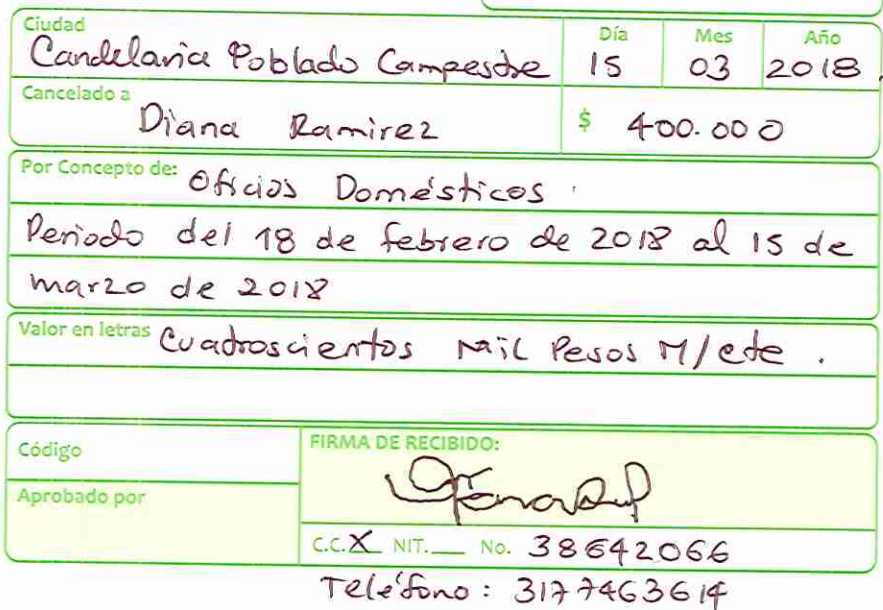 Ciudad Día Mes Año
Candelaria Poblado Campestre 15 03 2018
Cancelado a
Diana Ramirez $ 400.000
Por Concepto de: Oficios Domésticos.
Periodo del 18 de febrero de 2018 al 15 de
marzo de 2018
Valor en letras Cuadroscientos Mil Pesos M/cte.
Código
FIRMA DE RECIBIDO:
Aprobado por
C.C. X NIT.___ No. 38642066
Teléfono: 3177463614